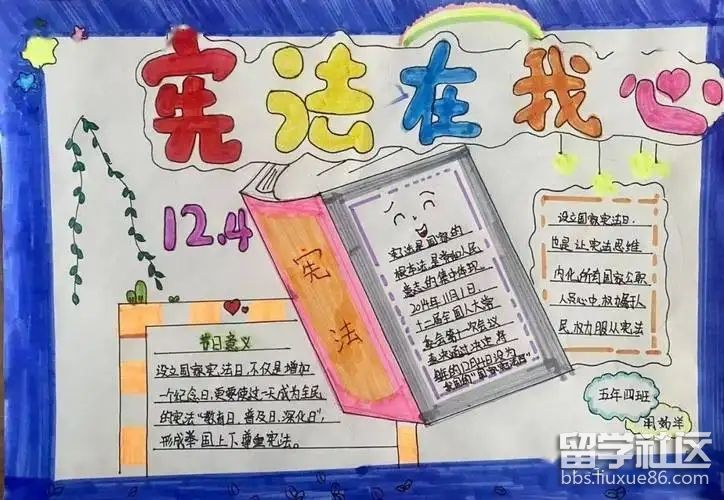 宪法在我心
12.4
宪法
宪法是国家的
根本法,是党和人民
意志的集中体现。
2014年11月1日,
十二届全国人大常
委会第十一次会议
表决通过决定,将
每年的12月4日设为
设立国家宪法日,
也是让宪法思维
内化所有国家公职
人员心中,权力属于人
民,权力服从宪法
节日意义
设立国家宪法日,不仅是增加
一个纪念日,更要使这一天成为全民
的宪法“教育日、普及日、深化日”,
形成举国上下尊重宪法。
五年四班
留学社区
bbs.liuxue86.com